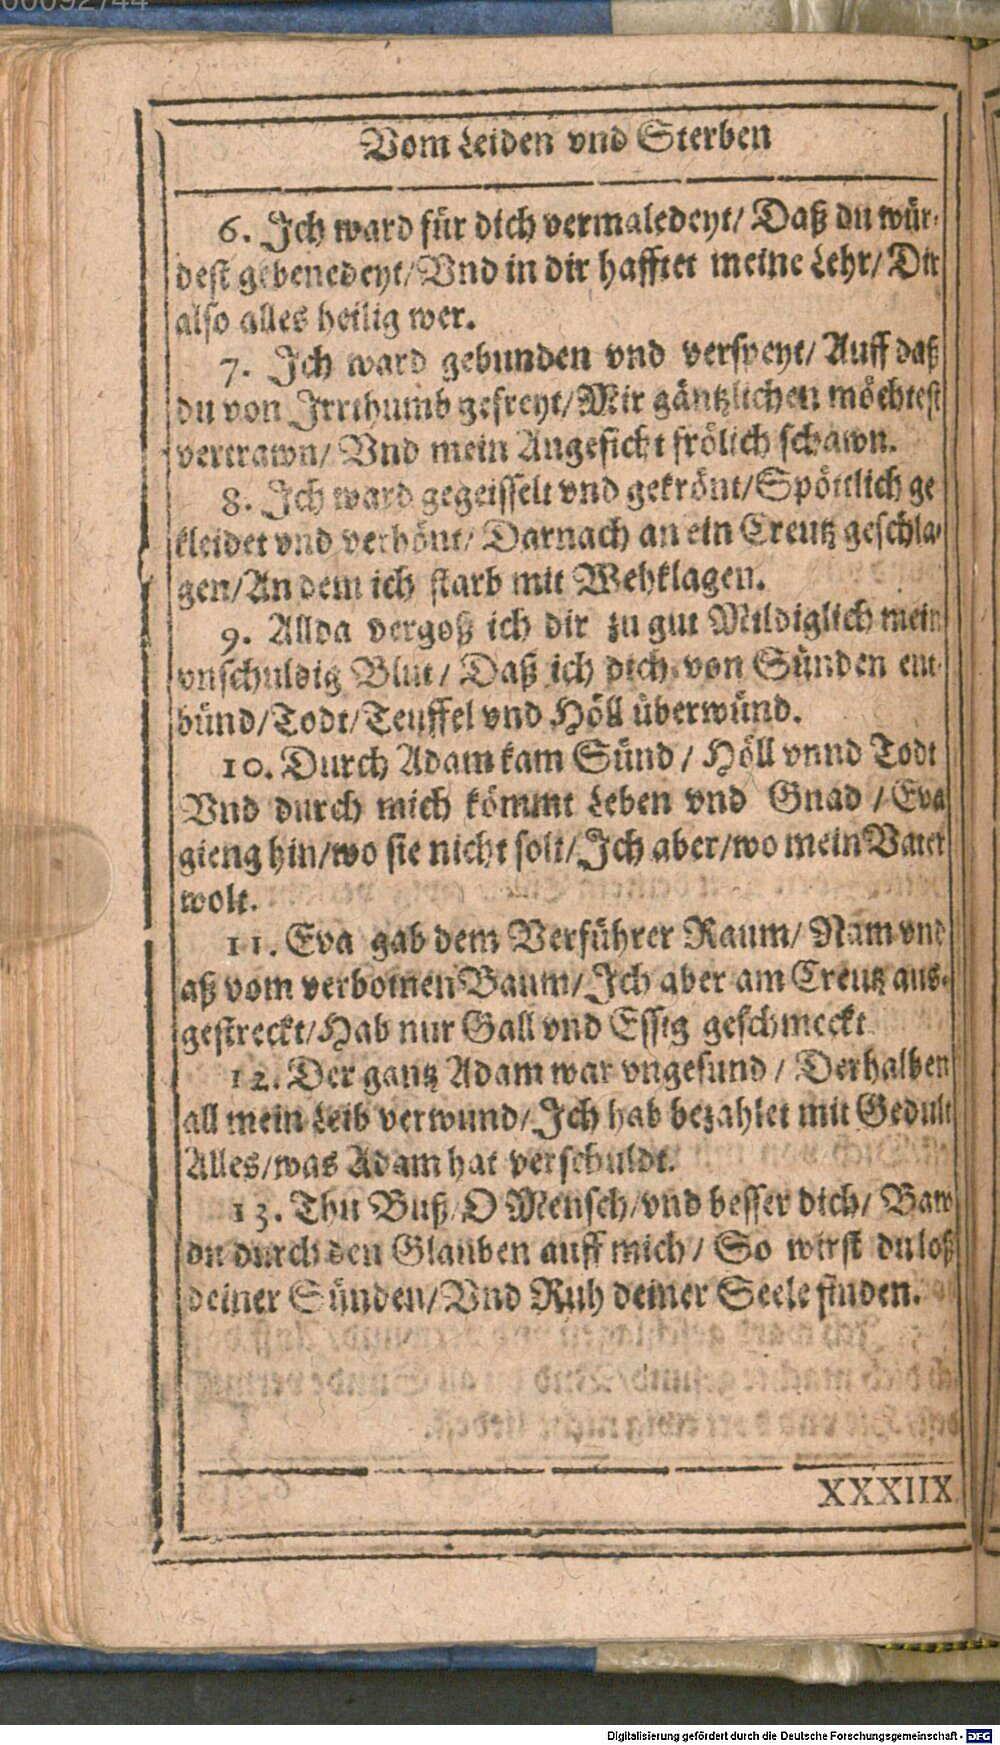 00092744
Vom Leiden vnd Sterben
6. Ich ward für dich vermaledeyt/ Daß du wür-
dest gebenedeyt/ Vnd in dir hafftet meine Lehr/ Dir
also alles heilig wer.
7. Ich ward gebunden vnd verspeyt/ Auff daß
du von Irrthumb gefreyt/ Mir gäntzlichen möchtest
vertrawn/ Vnd mein Angesicht frölich schawn.
8. Ich ward gegeisselt vnd gekrönt/ Spöttlich ge
kleidet vnd verhönt/ Darnach an ein Creutz geschla-
gen/ An dem ich starb mit Wehklagen.
9. Allda vergoß ich dir zu gut Mildiglich mein
vnschuldig Blut/ Daß ich dich von Sünden ent-
bünd/ Todt/ Teuffel vnd Höll überwünd.
10. Durch Adam kam Sünd / Höll vnnd Todt
Vnd durch mich kömmt Leben vnd Gnad / Eva
gieng hin/ wo sie nicht solt/ Ich aber/ wo mein Vater
wolt.
11. Eva gab dem Verführer Raum/ Nam vnd
aß vom verbotnen Baum/ Ich aber am Creutz aus-
gestreckt/ Hab nur Gall vnd Essig geschmeckt
12. Der gantz Adam war vngesund / Derhalben
all mein Leib verwund/ Ich hab bezahlet mit Gedult
Alles/ was Adam hat verschuldt.
13. Thu Buß/ O Mensch/ vnd besser dich/ Baw
du durch den Glauben auff mich / So wirst du loß
deiner Sünden/ Vnd Ruh deiner Seele finden.
XXXIIX
Digitalisierung gefördert durch die Deutsche Forschungsgemeinschaft - DFG